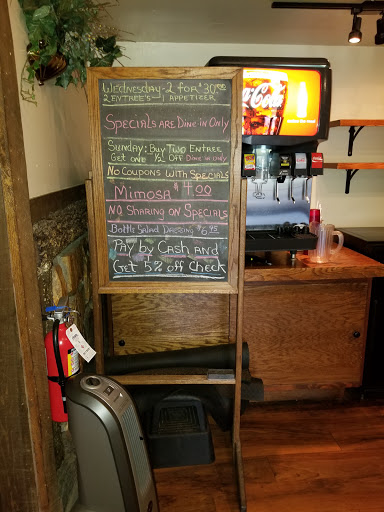 Wednesday-2 for $30.00
2 Entree's - 1 Appetizer
Specials are Dine in Only
Sunday: Buy Two Entree
Get one 1/2 Off Dine in only
No Coupons with Specials
Mimosa $4.00
No Sharing on Specials
Bottle Salad Dressing $6.95
Pay by Cash and
Get 5% off Check
Coca-Cola